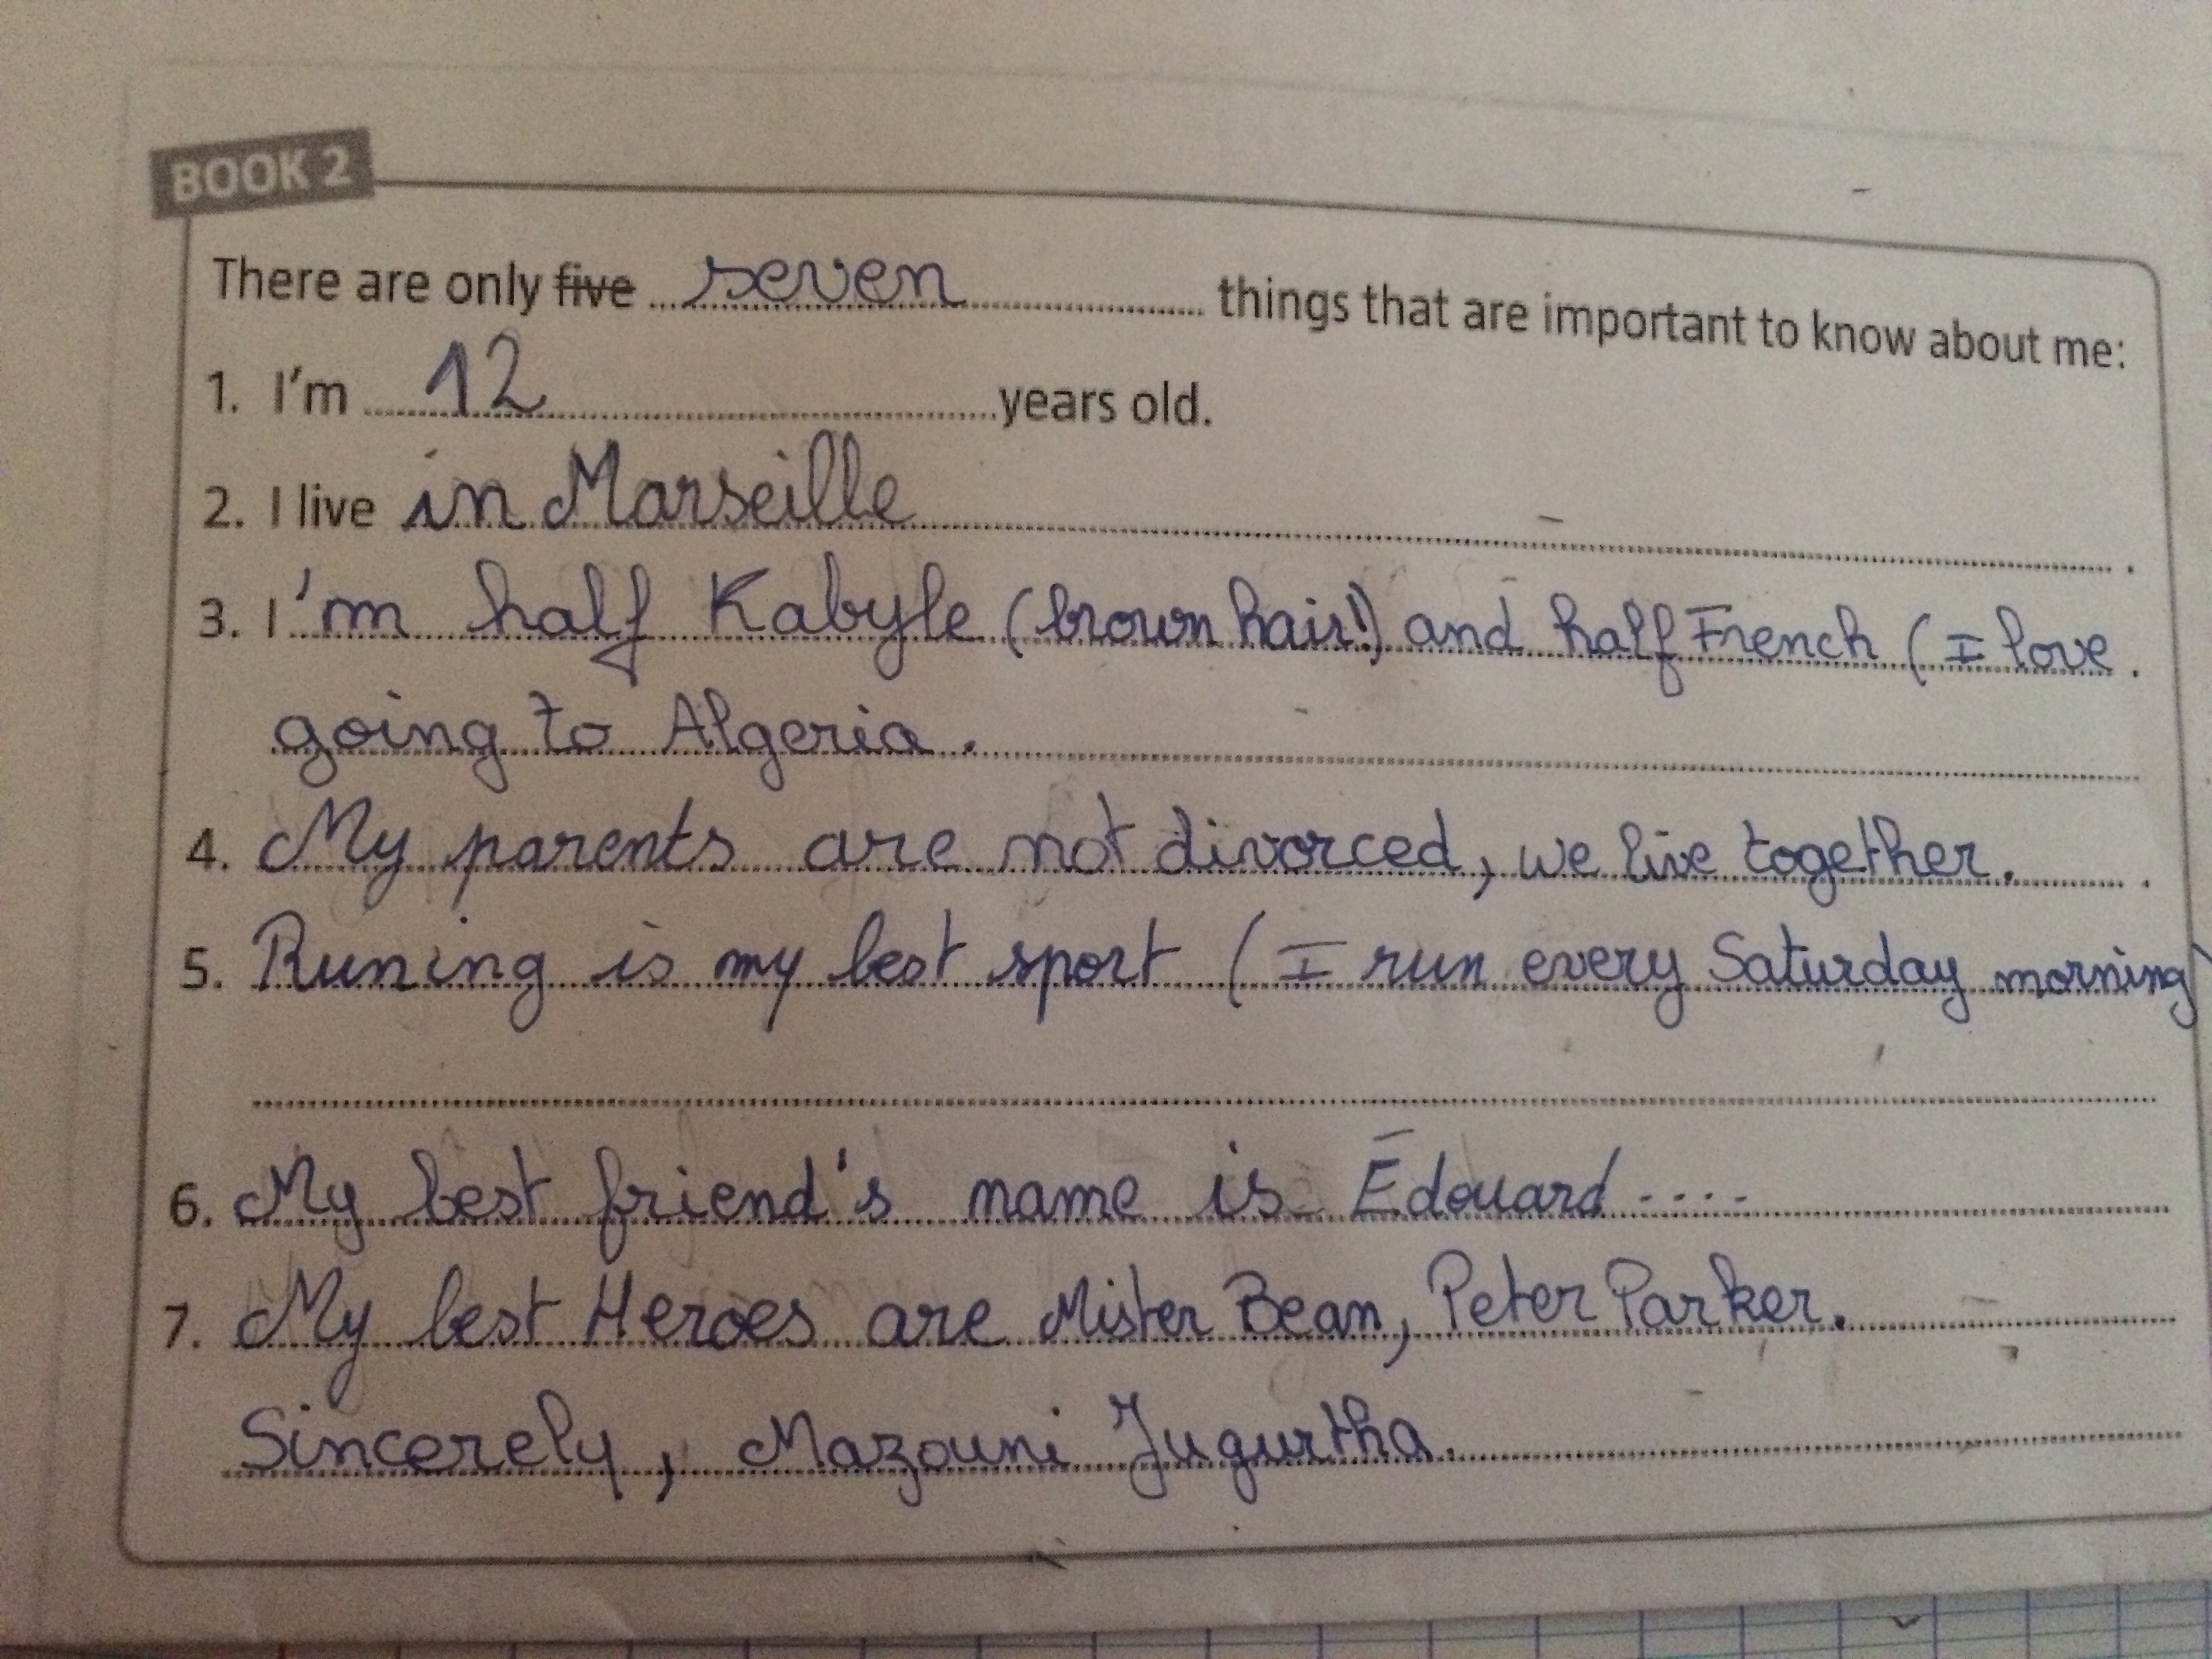 BOOK 2
There are only five seven things that are important to know about me:
1. I'm 12 years old.
2. I live in Marseille .
3. I'm half Kabyle (brown hair!) and half French (I love .
going to Algeria.
4. My parents are not divorced, we live together. .
5. Runing is my best sport (I run every Saturday morning)
6. My best friend's name is Édouard ....
7. My best Heroes are Mister Bean, Peter Parker.
Sincerely, Mazouni Jugurtha.